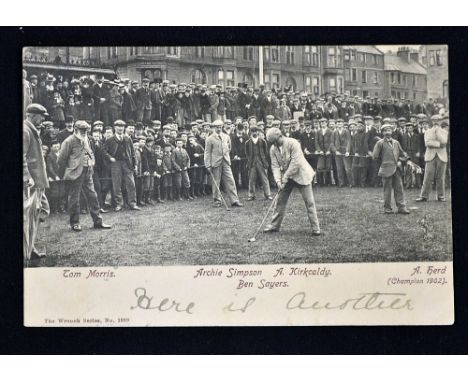 Tom Morris. Archie Simpson A. Kirkcaldy. A. Herd
Ben Sayers. (Champion 1902).
Here is Another
The Wrench Series, No.